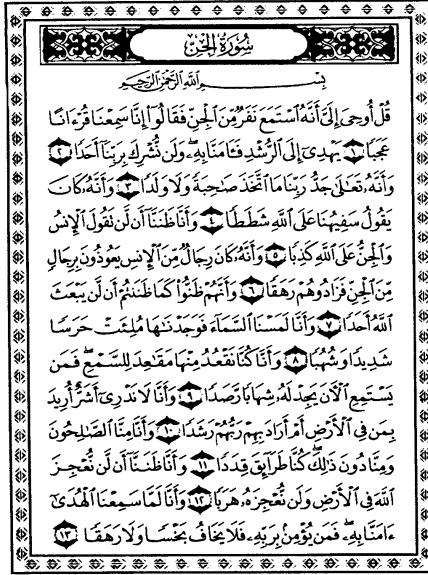 سُورَةُ الْجِنِّ
بِسْمِ اللَّهِ الرَّحْمَٰنِ الرَّحِيمِ
قُلْ أُوحِىَ إِلَىَّ أَنَّهُ ٱسْتَمَعَ نَفَرٌ مِّنَ ٱلْجِنِّ فَقَالُوٓا۟ إِنَّا سَمِعْنَا قُرْءَانًا
عَجَبًا ١ يَهْدِىٓ إِلَى ٱلرُّشْدِ فَـَٔامَنَّا بِهِۦ ۖ وَلَن نُّشْرِكَ بِرَبِّنَآ أَحَدًا ٢
وَأَنَّهُۥ تَعَـٰلَىٰ جَدُّ رَبِّنَا مَا ٱتَّخَذَ صَـٰحِبَةً وَلَا وَلَدًا ٣ وَأَنَّهُۥ كَانَ
يَقُولُ سَفِيهُنَا عَلَى ٱللَّهِ شَطَطًا ٤ وَأَنَّا ظَنَنَّآ أَن لَّن تَقُولَ ٱلْإِنسُ
وَٱلْجِنُّ عَلَى ٱللَّهِ كَذِبًا ٥ وَأَنَّهُۥ كَانَ رِجَالٌ مِّنَ ٱلْإِنسِ يَعُوذُونَ بِرِجَالٍ
مِّنَ ٱلْجِنِّ فَزَادُوهُمْ رَهَقًا ٦ وَأَنَّهُمْ ظَنُّوا۟ كَمَا ظَنَنتُمْ أَن لَّن يَبْعَثَ
ٱللَّهُ أَحَدًا ٧ وَأَنَّا لَمَسْنَا ٱلسَّمَآءَ فَوَجَدْنَـٰهَا مُلِئَتْ حَرَسًا
شَدِيدًا وَشُهُبًا ٨ وَأَنَّا كُنَّا نَقْعُدُ مِنْهَا مَقَـٰعِدَ لِلسَّمْعِ ۖ فَمَن
يَسْتَمِعِ ٱلْـَٔانَ يَجِدْ لَهُۥ شِهَابًا رَّصَدًا ٩ وَأَنَّا لَا نَدْرِىٓ أَشَرٌّ أُرِيدَ
بِمَن فِى ٱلْأَرْضِ أَمْ أَرَادَ بِهِمْ رَبُّهُمْ رَشَدًا ١٠ وَأَنَّا مِنَّا ٱلصَّـٰلِحُونَ
وَمِنَّا دُونَ ذَٰلِكَ ۖ كُنَّا طَرَآئِقَ قِدَدًا ١١ وَأَنَّا ظَنَنَّآ أَن لَّن نُّعْجِزَ
ٱللَّهَ فِى ٱلْأَرْضِ وَلَن نُّعْجِزَهُۥ هَرَبًا ١٢ وَأَنَّا لَمَّا سَمِعْنَا ٱلْهُدَىٰٓ
ءَامَنَّا بِهِۦ ۖ فَمَن يُؤْمِنۢ بِرَبِّهِۦ فَلَا يَخَافُ بَخْسًا وَلَا رَهَقًا ١٣